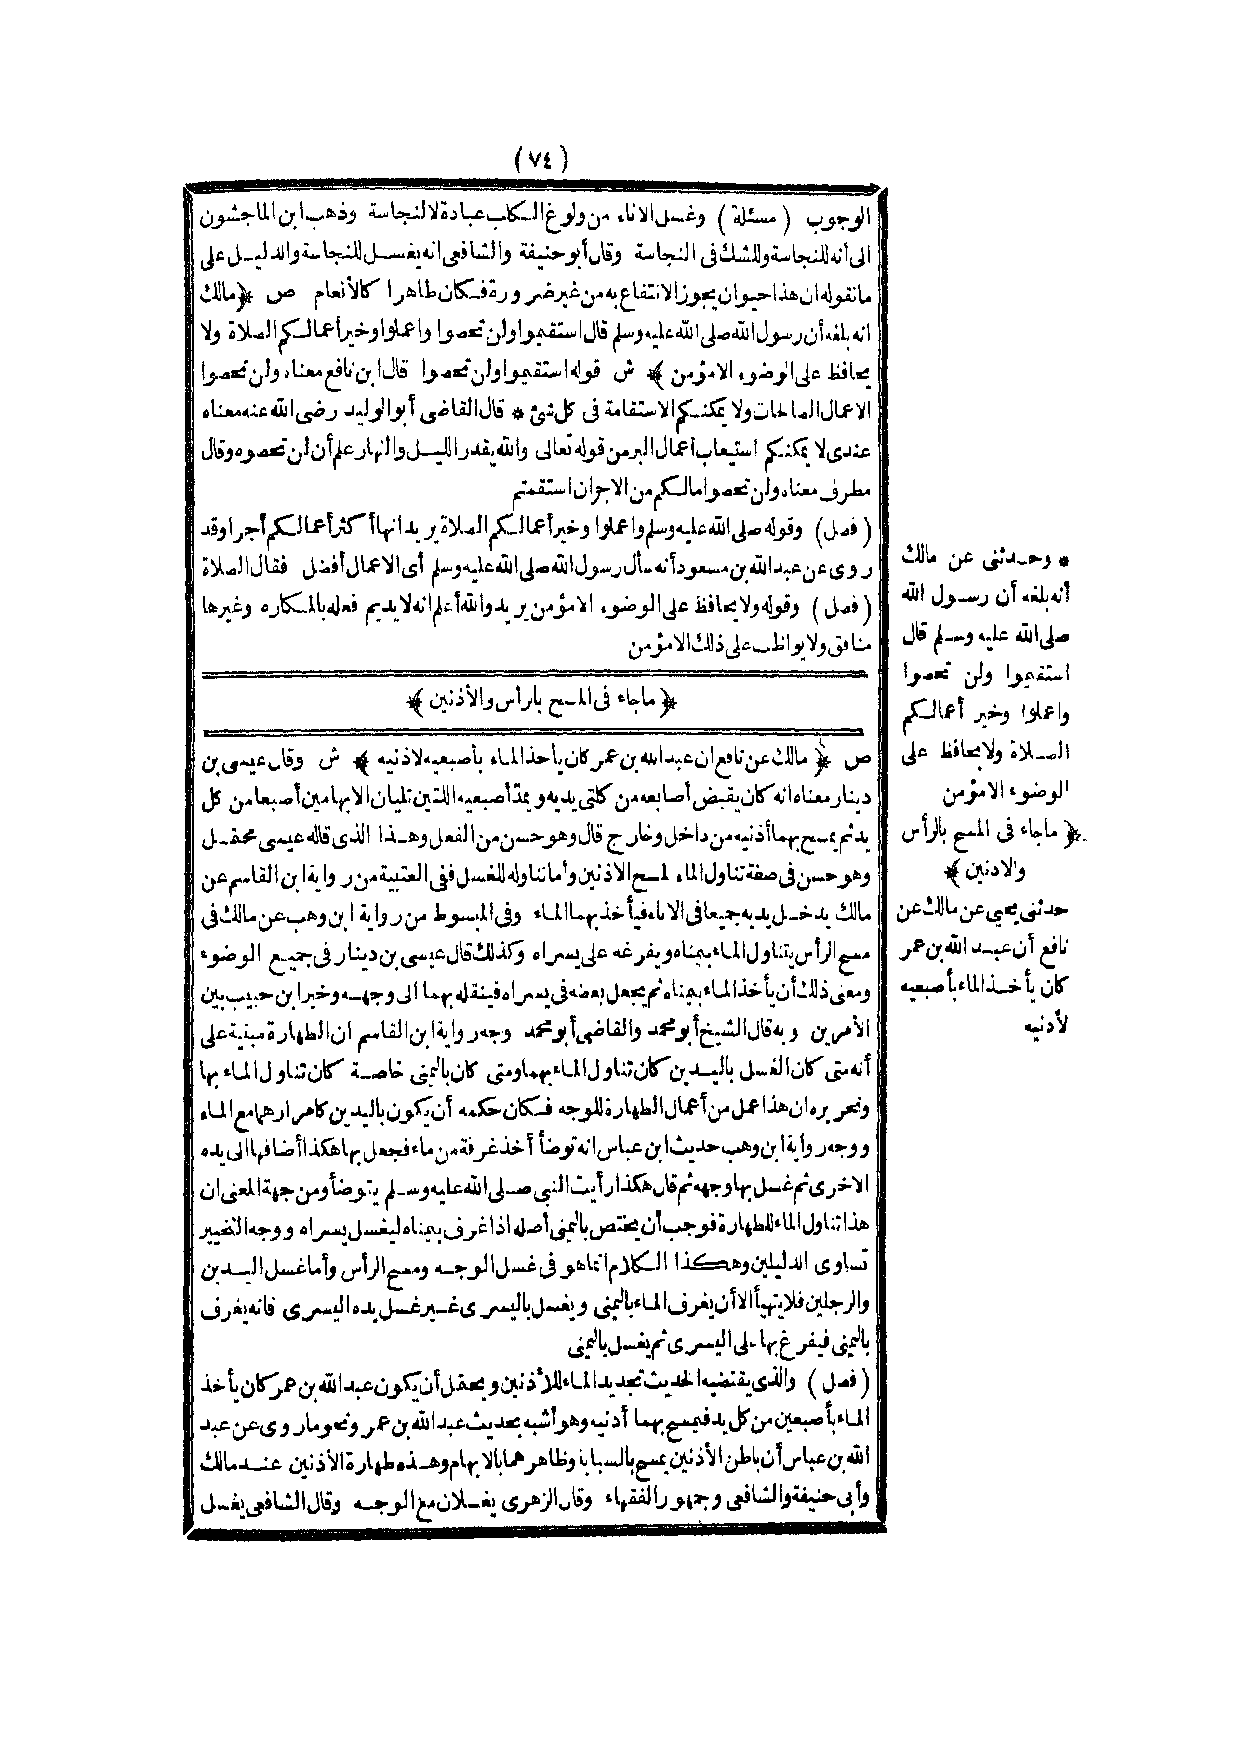 (٧٤)
الوجوب (مسئلة) وغسل الاناء من ولوغ الكلب عبادة لا لنجاسة وذهب ابن الماجشون
الى أنه للنجاسة وللشك فى النجاسة وقال أبو حنيفة والشافعى انه يغسل للنجاسة والدليل على
ما نقوله ان هذا حيوان يجوز الانتفاع به من غير ضرورة فكان طاهرا كالأنعام ص ﴿مالك
انه بلغه أن رسول الله صلى الله عليه وسلم قال استقيموا ولن تحصوا واعملوا وخير أعمالكم الصلاة ولا
يحافظ على الوضوء الا مؤمن ﴾ ش قوله استقيموا ولن تحصوا قال ابن نافع معناه ولن تحصوا
الاعمال الصالحات ولا يمكنكم الاستقامة فى كل شئ * قال القاضى أبو الوليد رضى الله عنه معناه
عندى لا يمكنكم استيعاب أعمال البر من قوله تعالى والله يقدر الليل والنهار علم أن لن تحصوه وقال
مطرف معناه ولن تحصوا مالكم من الاجران استقمتم
(فصل) وقوله صلى الله عليه وسلم واعملوا وخير أعمالكم الصلاة يريد انها أكثر أعمالكم أجرا وقد
روى عن عبد الله بن مسعود أنه سأل رسول الله صلى الله عليه وسلم أى الاعمال أفضل فقال الصلاة
(فصل) وقوله ولا يحافظ على الوضوء الا مؤمن يريد والله أعلم انه لا يديم فعله بالمكاره وغيرها
منافق ولا يواظب على ذلك الا مؤمن
﴿ ماجاء فى المسح بالرأس والأذنين ﴾
ص ﴿ مالك عن نافع ان عبد الله بن عمر كان يأخذ الماء بأصبعيه لاذنيه ﴾ ش وقال عيسى بن
دينار معناه انه كان يقبض أصابعه من كلتى يديه ويمد أصبعيه اللتين تليان الابهامين أصبعا من كل
يد ثم يمسح بهما أذنيه من داخل وخارج قال وهو حسن من الفعل وهذا الذى قاله عيسى محتمل
وهو حسن فى صفة تناول الماء لمسح الاذنين وأما تناوله للغسل ففى العتبية من رواية ابن القاسم عن
مالك يدخل يديه جميعا فى الاناء فيأخذ بهما الماء وفى المبسوط من رواية ابن وهب عن مالك فى
مسح الرأس يتناول الماء بيمناه ويفرغه على يسراه وكذلك قال عيسى بن دينار فى جميع الوضوء
ومعنى ذلك أن يأخذ الماء بيمناه ثم يجعل بعضه فى يسراه فينقله بهما الى وجهه وخير ابن حبيب بين
الأمرين وبه قال الشيخ أبو محمد والقاضى أبو محمد وجه رواية ابن القاسم ان الطهارة مبنية على
أنه متى كان الغسل باليدين كان تناول الماء بهما ومتى كان باليمنى خاصة كان تناول الماء بها
وتحريره ان هذا عمل من أعمال الطهارة للوجه فكان حكمه أن يكون باليدين كامرارهما مع الماء
ووجه رواية ابن وهب حديث ابن عباس انه توضأ أخذ غرفة من ماء فجعل بها هكذا أضافها الى يده
الاخرى ثم غسل بها وجهه ثم قال هكذا رأيت النبى صلى الله عليه وسلم يتوضأ ومن جهة المعنى ان
هذا تناول الماء للطهارة فوجب أن يختص باليمنى أصله اذا غرف بيمناه ليغسل يسراه ووجه التخيير
تساوى الدليلين وهكذا الكلام انما هو فى غسل الوجه ومسح الرأس وأما غسل اليدين
والرجلين فلا يتهيأ الا أن يغرف الماء باليمنى ويغسل باليسرى غير غسل يده اليسرى فانه يغرف
باليمنى فيفرغ بها على اليسرى ثم يغسل باليمنى
(فصل) والذى يقتضيه الحديث تجديد الماء للأذنين ويحتمل أن يكون عبد الله بن عمر كان يأخذ
الماء بأصبعين من كل يد فيمسح بهما أذنيه وهو أشبه بحديث عبد الله بن عمر ونحو ما روى عن عبد
الله بن عباس أن باطن الأذنين يمسح بالسبابة وظاهرهما بالابهام وهذه طهارة الأذنين عند مالك
وأبى حنيفة والشافعى وجمهور الفقهاء وقال الزهرى يغسلان مع الوجه وقال الشافعى يغسل
* وحدثنى عن مالك
أنه بلغه أن رسول الله
صلى الله عليه وسلم قال
استقيموا ولن تحصوا
واعملوا وخير أعمالكم
الصلاة ولا يحافظ على
الوضوء الا مؤمن
﴿ ماجاء فى المسح بالرأس
والاذنين ﴾
حدثنى يحيى عن مالك عن
نافع أن عبد الله بن عمر
كان يأخذ الماء بأصبعيه
لأذنيه